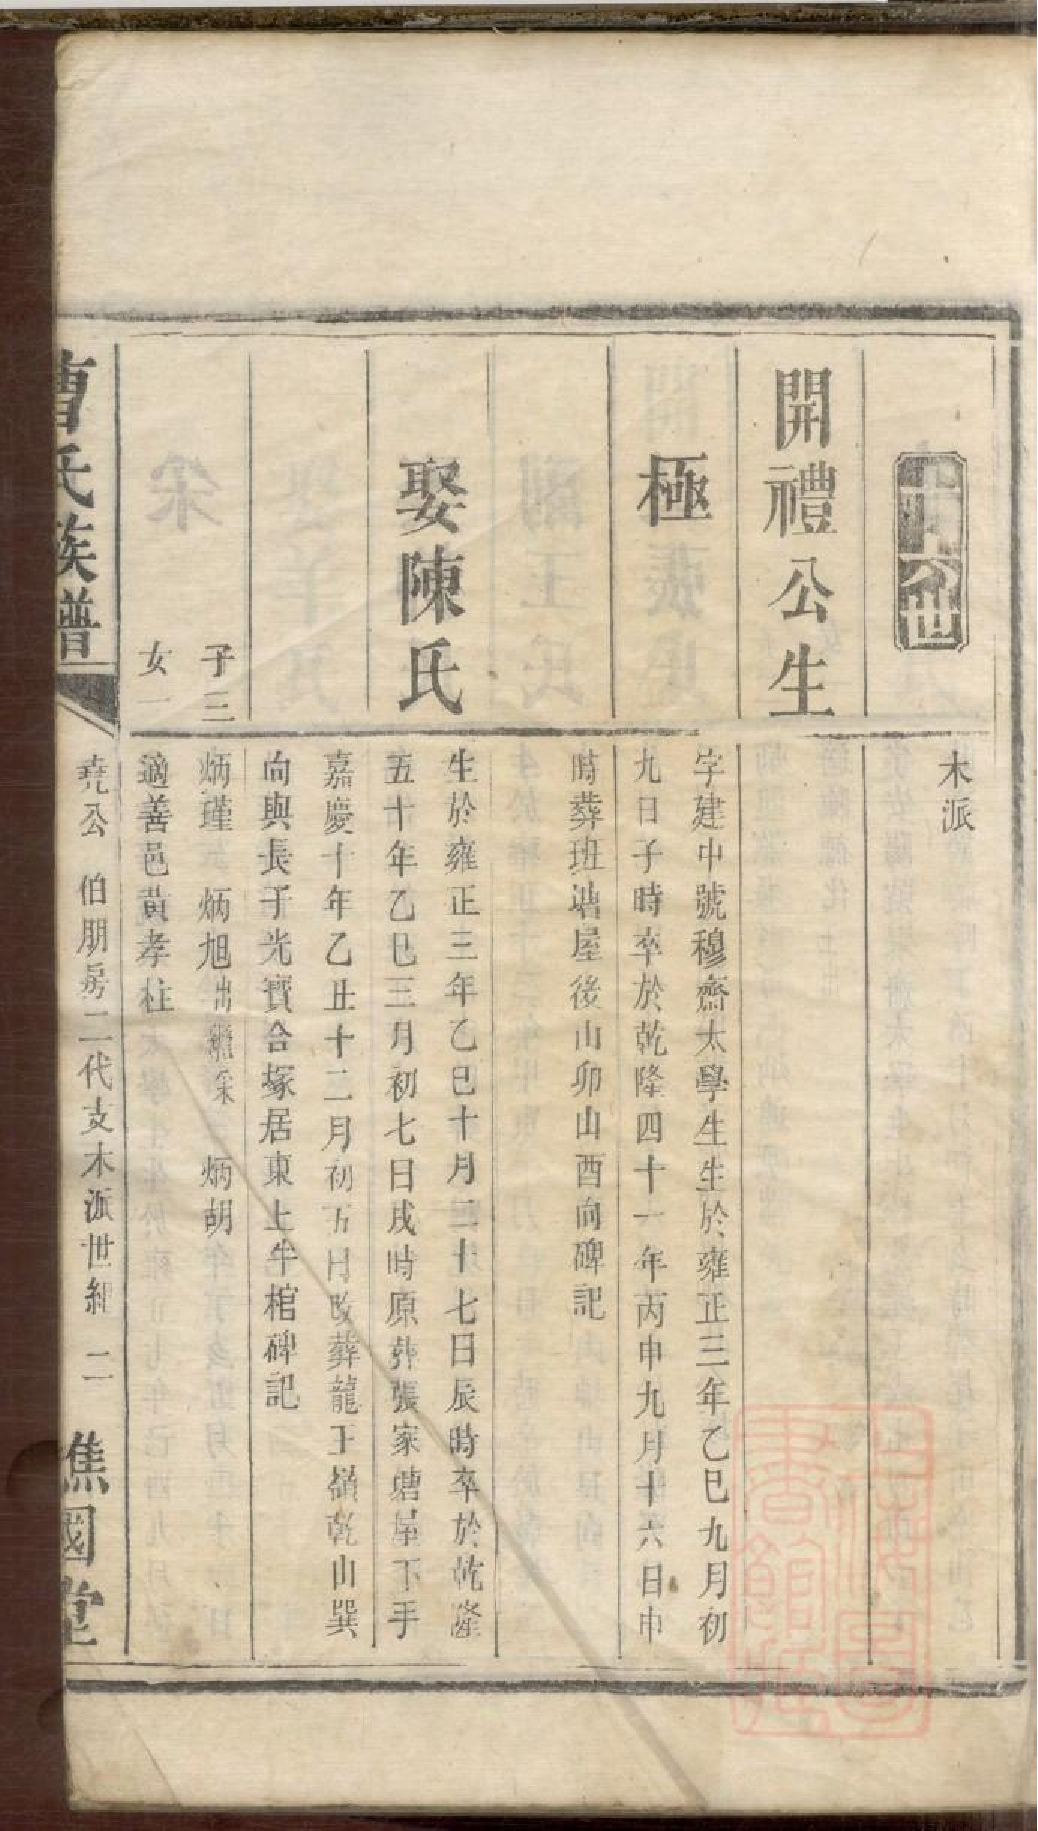 世
木派
開禮公生
極
字建中號穆齋太學生生於雍正三年乙巳九月初
九日子時卒於乾隆四十一年丙申九月十六日申
時葬班塘屋後山卯山酉向碑記
娶陳氏
生於雍正三年乙巳十月二十七日辰時卒於乾隆
五十年乙巳三月初七日戌時原葬張家塘屋下手
嘉慶十年乙丑十二月初五日改葬龍王嶺乾山巽
向與長子光寶合塚居東上牛棺碑記
子三
炳瑾 炳旭出繼 炳胡
女一
適善邑黃孝柱
曹氏族譜
堯公 伯朋房二代支木派世紀 二
譙國堂